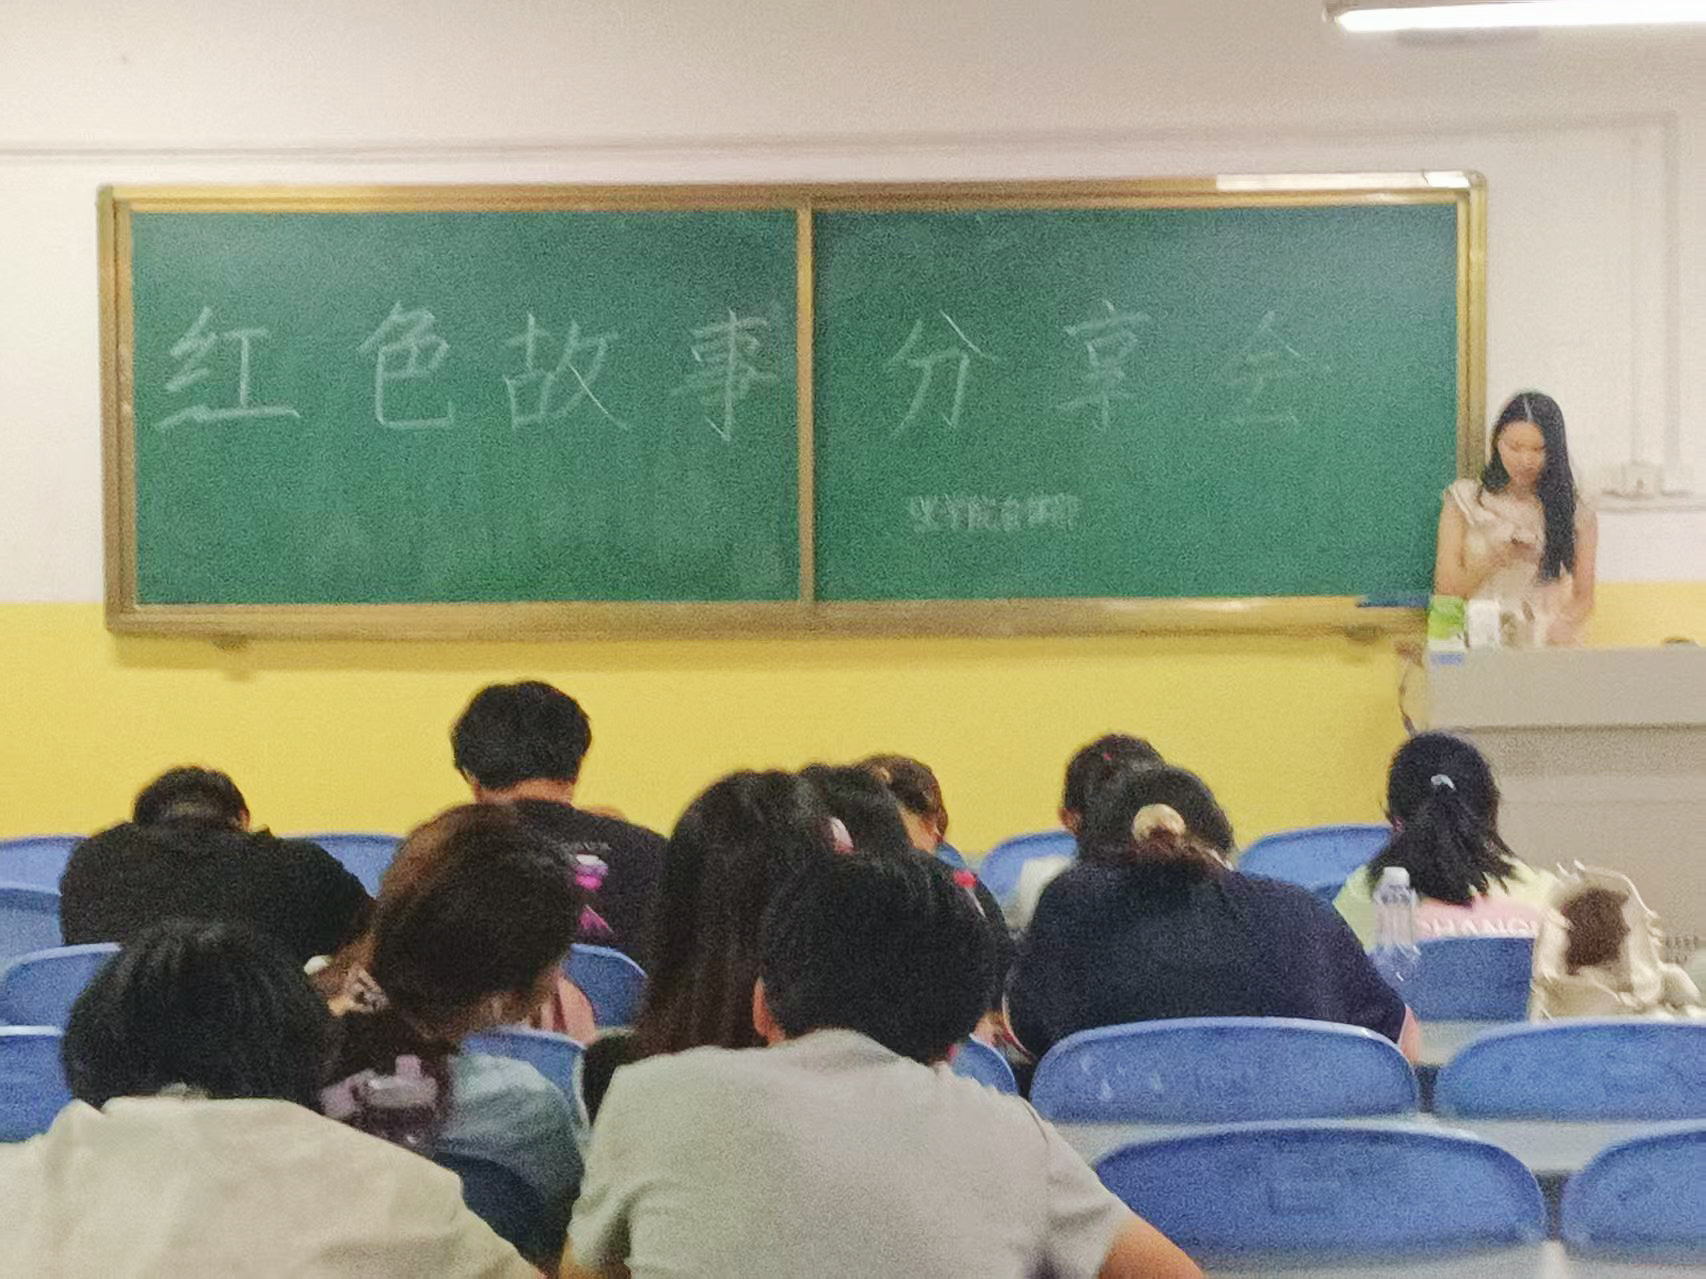 红色故事分享会
HANG